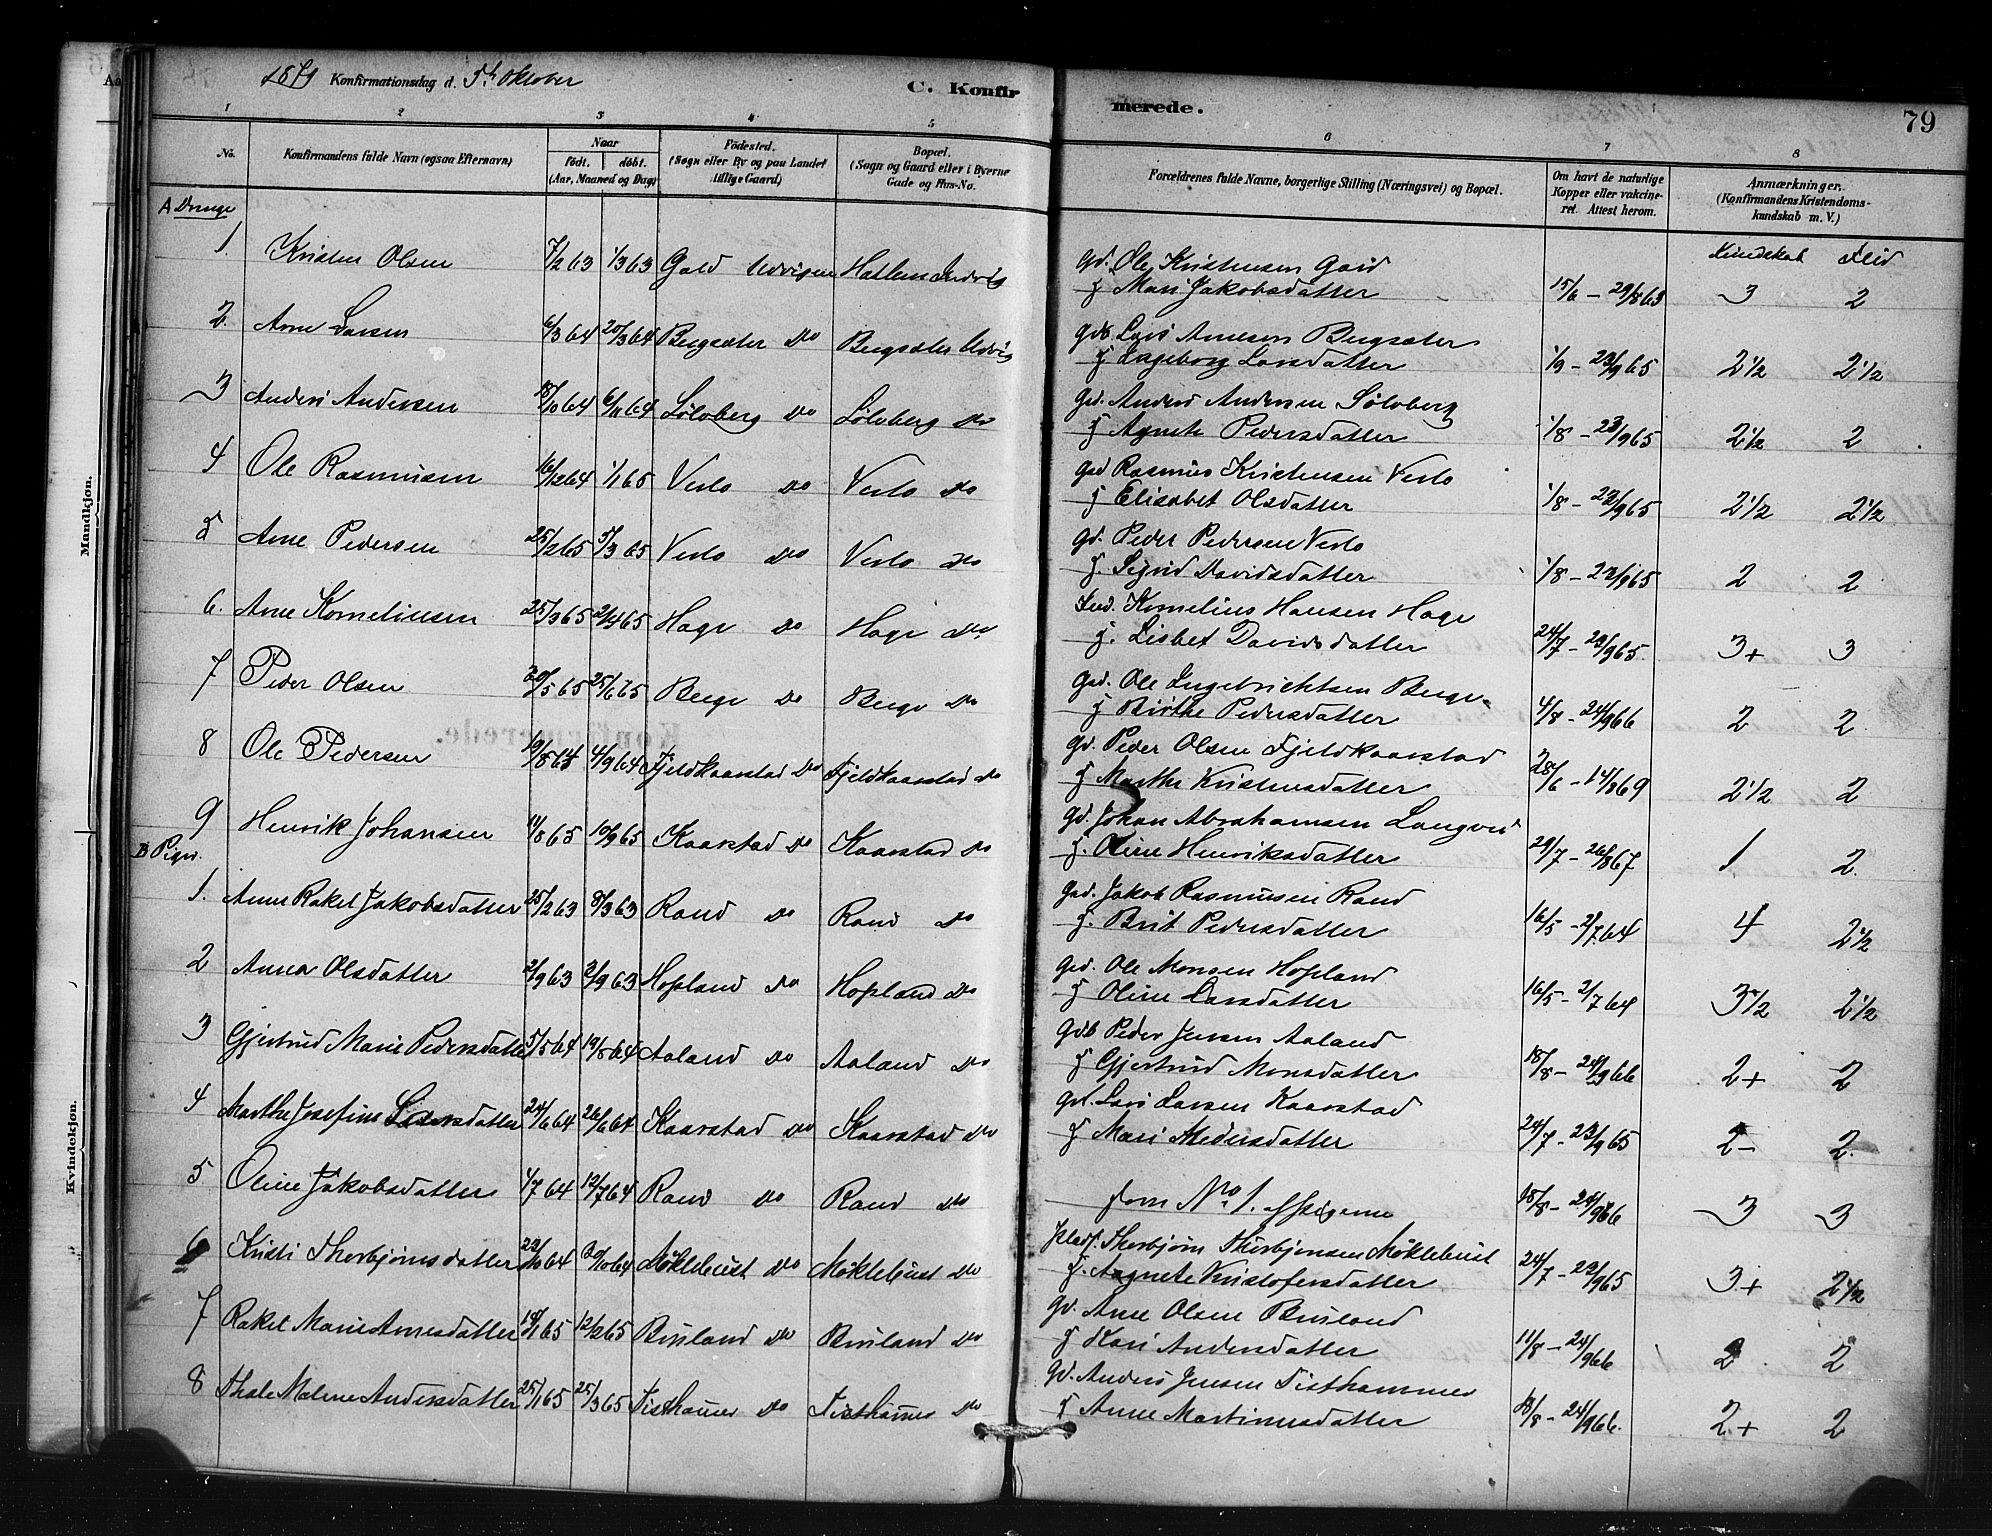 1879 Konfirmationsdag d. 5te Oktober C. Konfirmerede. 79
1 2 3 4 5 6 7 8
No. Konfirmandens fulde Navn (ogsaa Efternavn) Naar født. døbt. (Aar, Maaned og Dag) Fødested. (Sogn eller By og paa Landet tillige Gaard) Bopæl. (Sogn og Gaard eller i Byerne Gade og Hus-No. Forældrenes fulde Navne, borgerlige Stilling (Næringsvei) og Bopæl. Om havt de naturlige Kopper eller vakcineret. Attest herom. Anmærkninger. (Konfirmandens Kristendomskundskab m. V.)
A Drenge
Kundskab Flid
1. Kristen Olsen 7/2 63 1/3 63 Gald Indvigen Hatlem Indvig gd. Ole Kristensen Gald
f Mari Jakobsdatter 15/6 - 29/8 63 3 2
2. Arne Larsen 6/3 64 20/3 64 Bergsæter Do Bergsæter Indvig gdb Lars Arnesen Bergsæter
f Ingeborg Larsdatter 1/9 - 23/9 65 2 1/2 2 1/2
3 Anders Andersen 18/10 64 6/11 64 Sølvberg Do Sølvberg Do gd. Anders Andersen Sølvberg
f Agnete Pedersdatter 1/8 - 23/9 65 2 1/2 2
4 Ole Rasmussen 16/12 64 1/1 65 Verlo Do Verlo Do gd Rasmus Kristensen Verlo
f Elisabet Olsdatter 1/8 - 23/9 65 2 1/2 2 1/2
5 Arne Pedersen 25/2 65 5/3 65 Verlo Do Verlo Do gd. Peder Pedersen Verlo
f. Sigrid Davidsdatter 1/8 - 23/9 65 2 2
6. Arne Korneliussen 25/3 65 2/4 65 Hage Do Hage Do Ind. Kornelius Hansen Hage
f. Lisbet Davidsdatter 24/7 - 23/9 65. 3+ 3
7 Peder Olsen 30/5 65 25/6 65 Berge Do Berge Do gd. Ole Ingebrichtsen Berge
f Birthe Pedersdatter 4/8 - 24/9 66 2 2.
8 Ole Pedersen 19/8 64 4/9 64 Fjeldkaarstad Do Fjeldkaarstad Do gd. Peder Olsen Fjeldkaarstad
f Marthe Kristensdatter 28/6 - 14/8 69 2 1/2 2
9 Henrik Johansen 11/8 65 10/9 65 Kaarstad Do Kaarstad Do gd. Johan Abrahamsen
f. Oline Henriksdatter 29/7 - 26/8 67 1 2.
B Piger.
1. Anne Rakel Jakobsdatter 25/2 63 8/3 63 Rand Do Rand Do gd. Jakob Rasmussen Rand
f. Brit Pedersdatter 16/5 - 2/7 64 4 2 1/2
2 Anna Olsdatter 2/9 63 3/9 63 Hopland Do Hopland Do gd. Ole Monsen Hopland
f Oline Larsdatter 16/5 - 2/7 64 3 1/2 2 1/2
3 Gjertrud Marie Pedersdatter 5/5 64 19/5 64 Aaland Do Aaland Do gdb Peder Jensen Aaland
f Gjertrud Monsdatter 18/8 - 24/9 66 2+ 2
4 Marthe Josefine Larsdatter 24/6 64 26/6 64 Kaarstad Do Kaarstad Do gd. Lars Larsen Kaarstad
f Mari Pedersdatter 24/7 - 23/9 65 2- 2.
5 Oline Jakobsdatter 4/7 64 12/7 64 Rand Do Rand Do som No 1. af Pigerne 18/8 - 24/9 66 3 3
6 Kristi Thorbjørnsdatter 23/10 64 30/10 64 Møklebust Do Møklebust Do Thorbjørn Thorbjørnsen Møklebust
f. Agnete Kristofersdatter 24/7 - 23/9 65 3+ 2 1/2
7 Rakel Marie Arnesdatter 18/1 65 12/2 65 Brusland Do Brusland Do gd. Arne Olsen Brusland
f Kari Andersdatter 11/8 - 24/9 66 2 2
8 Thale Malene Andersdatter 25/1 65 25/3 65 Tisthammer Do Tisthammer Do gd. Anders Jensen Tisthammer
f Anne Martinusdatter 18/8 - 24/9 66. 2+ 2
Mandkjøn.
Kvindekjøn.